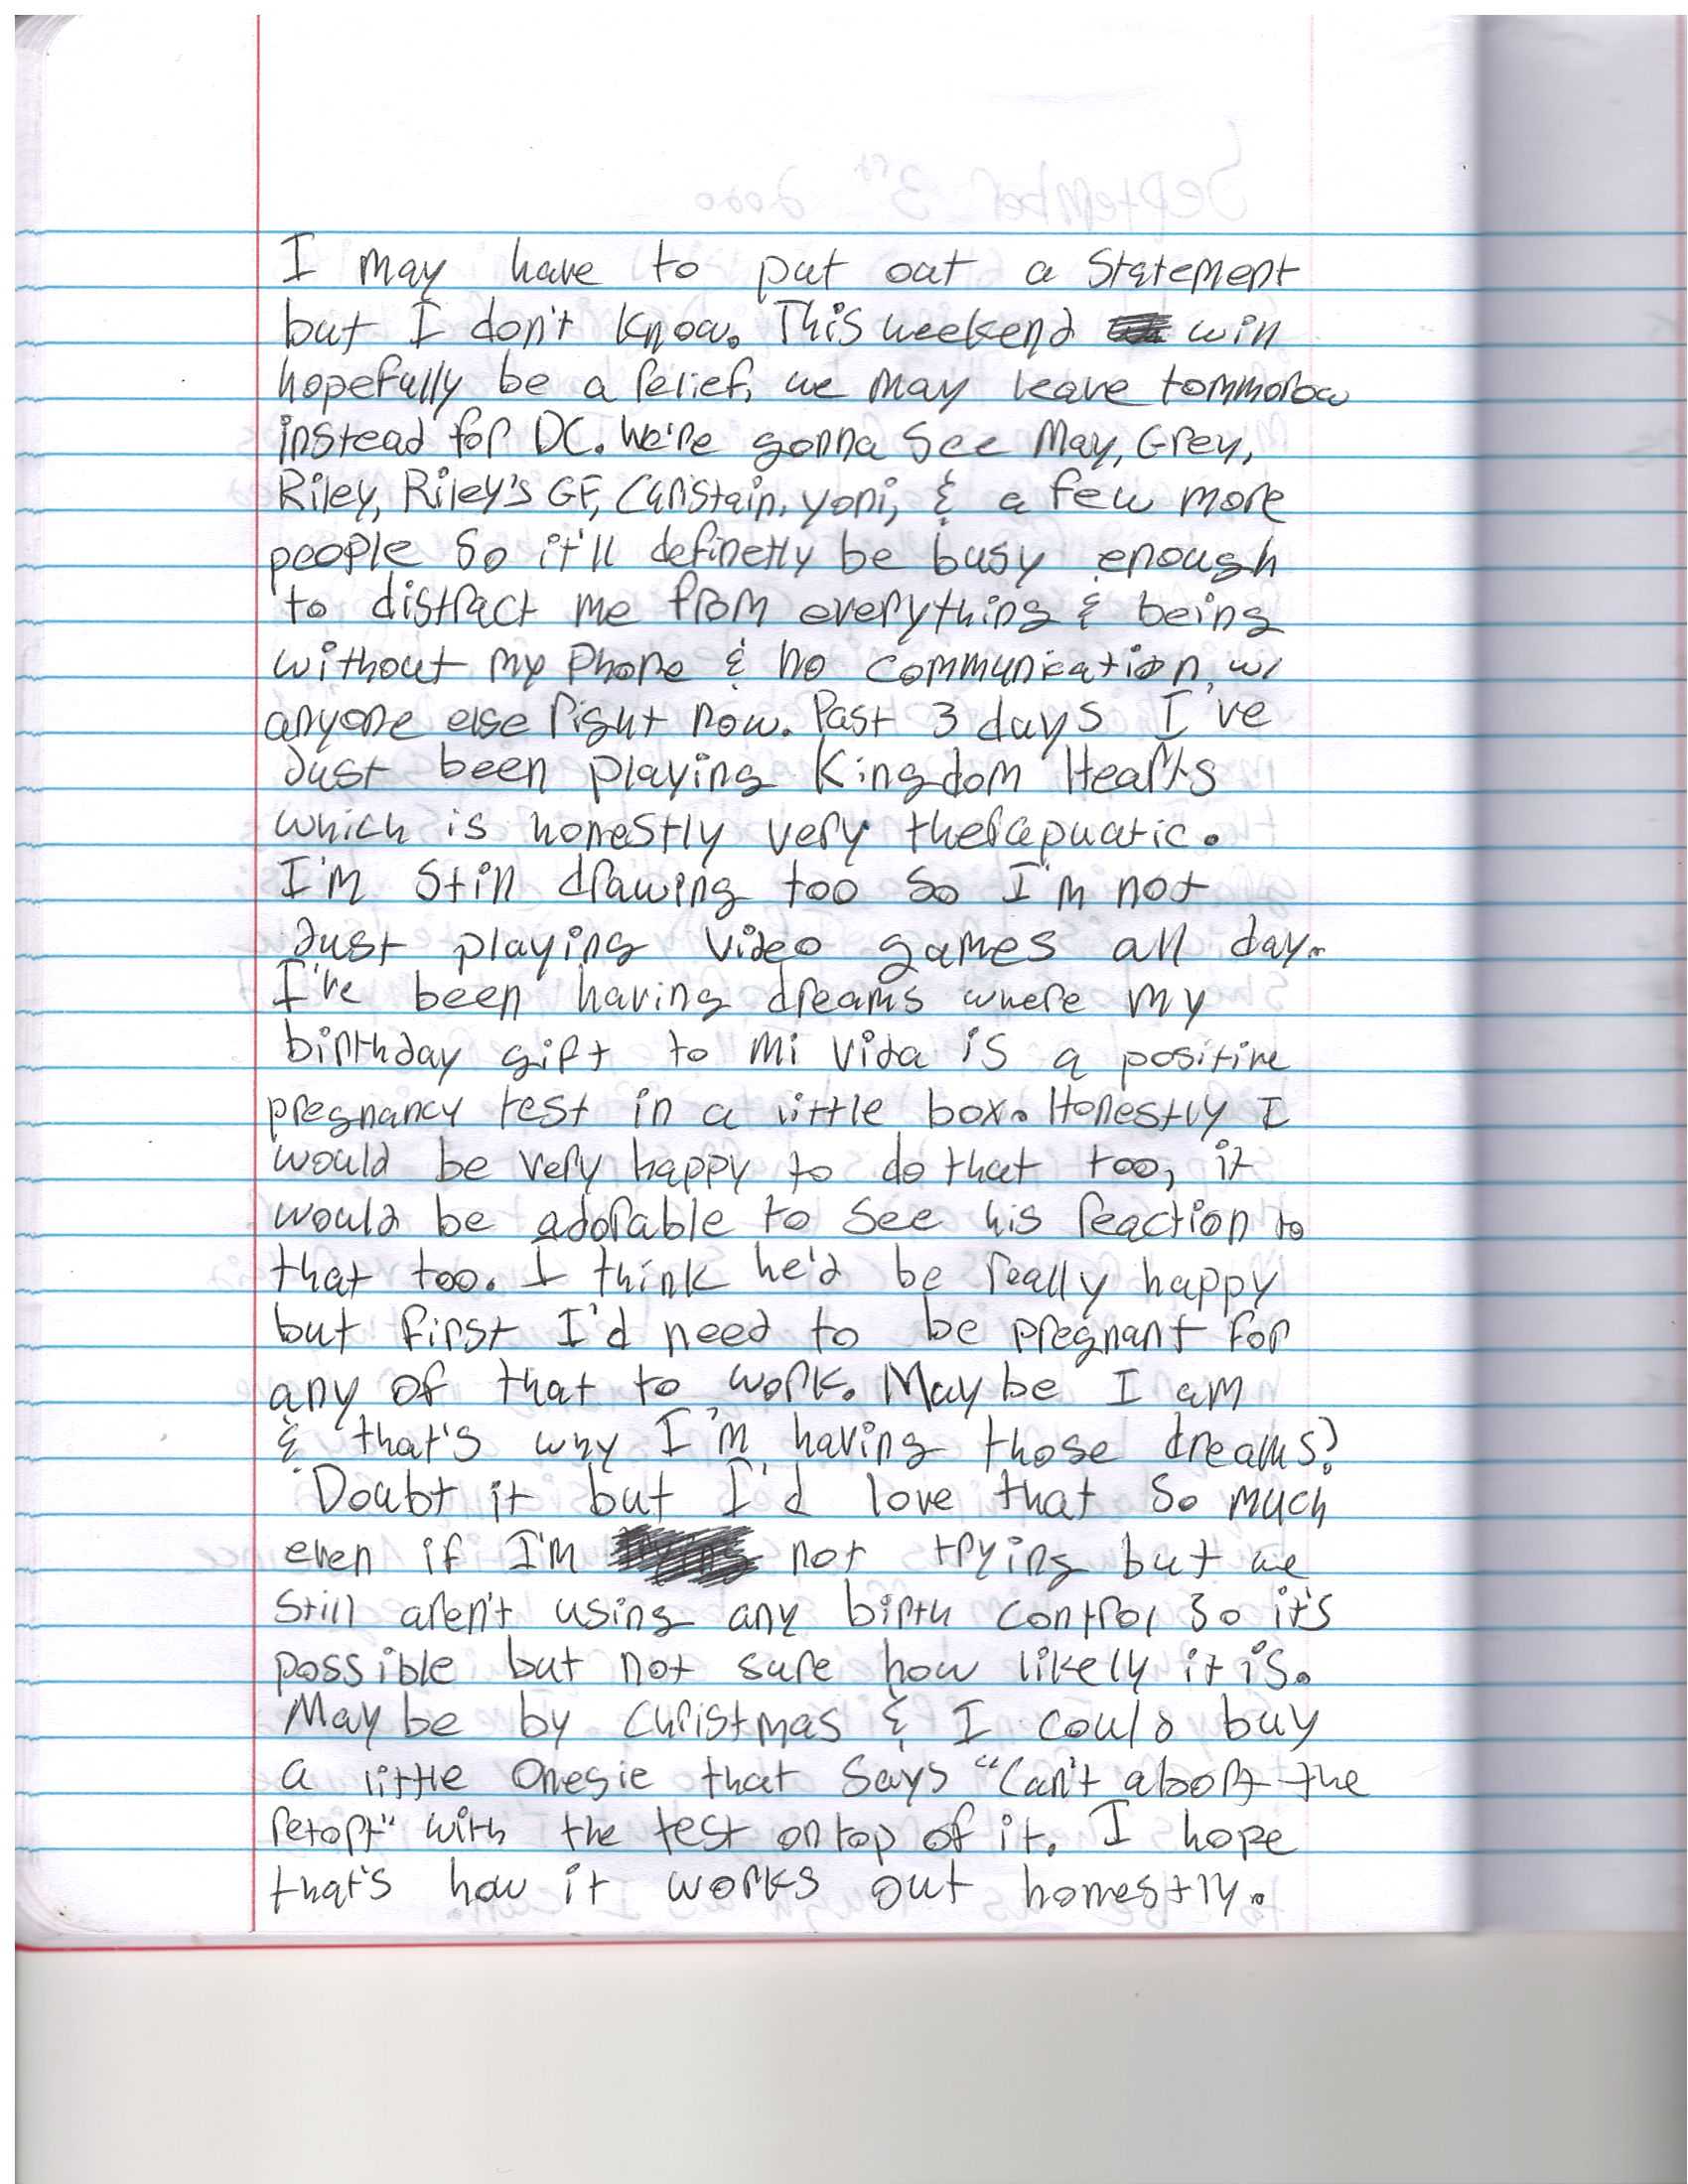 I may have to put out a statement
but I don't know. This weekend will
hopefully be a relief, we may leave tommorow
instead for DC. We're gonna see May, Grey,
Riley, Riley's GF, Carstain, Yoni, & a few more
people so it'll definetly be busy enough
to distract me from everything & being
without my phone & no communication w/
anyone else right now. Past 3 days I've
Just been playing Kingdom Hearts
which is honestly very therapuatic.
I'm still drawing too so I'm not
Just playing video games all day.
I've been having dreams where my
birthday gift to mi vida is a positive
pregnancy test in a little box. Honestly I
would be very happy to do that too, it
would be adorable to see his reaction to
that too. I think he'd be really happy
but first I'd need to be pregnant for
any of that to work. Maybe I am
& that's why I'm having those dreams?
Doubt it but I'd love that so much
even if I'm not trying but we
still aren't using any birth control so it's
possible but not sure how likely it is.
Maybe by Christmas & I could buy
a little onesie that says "Can't abort the
retort" with the test on top of it. I hope
that's how it works out homestly.
September 3rd 2020